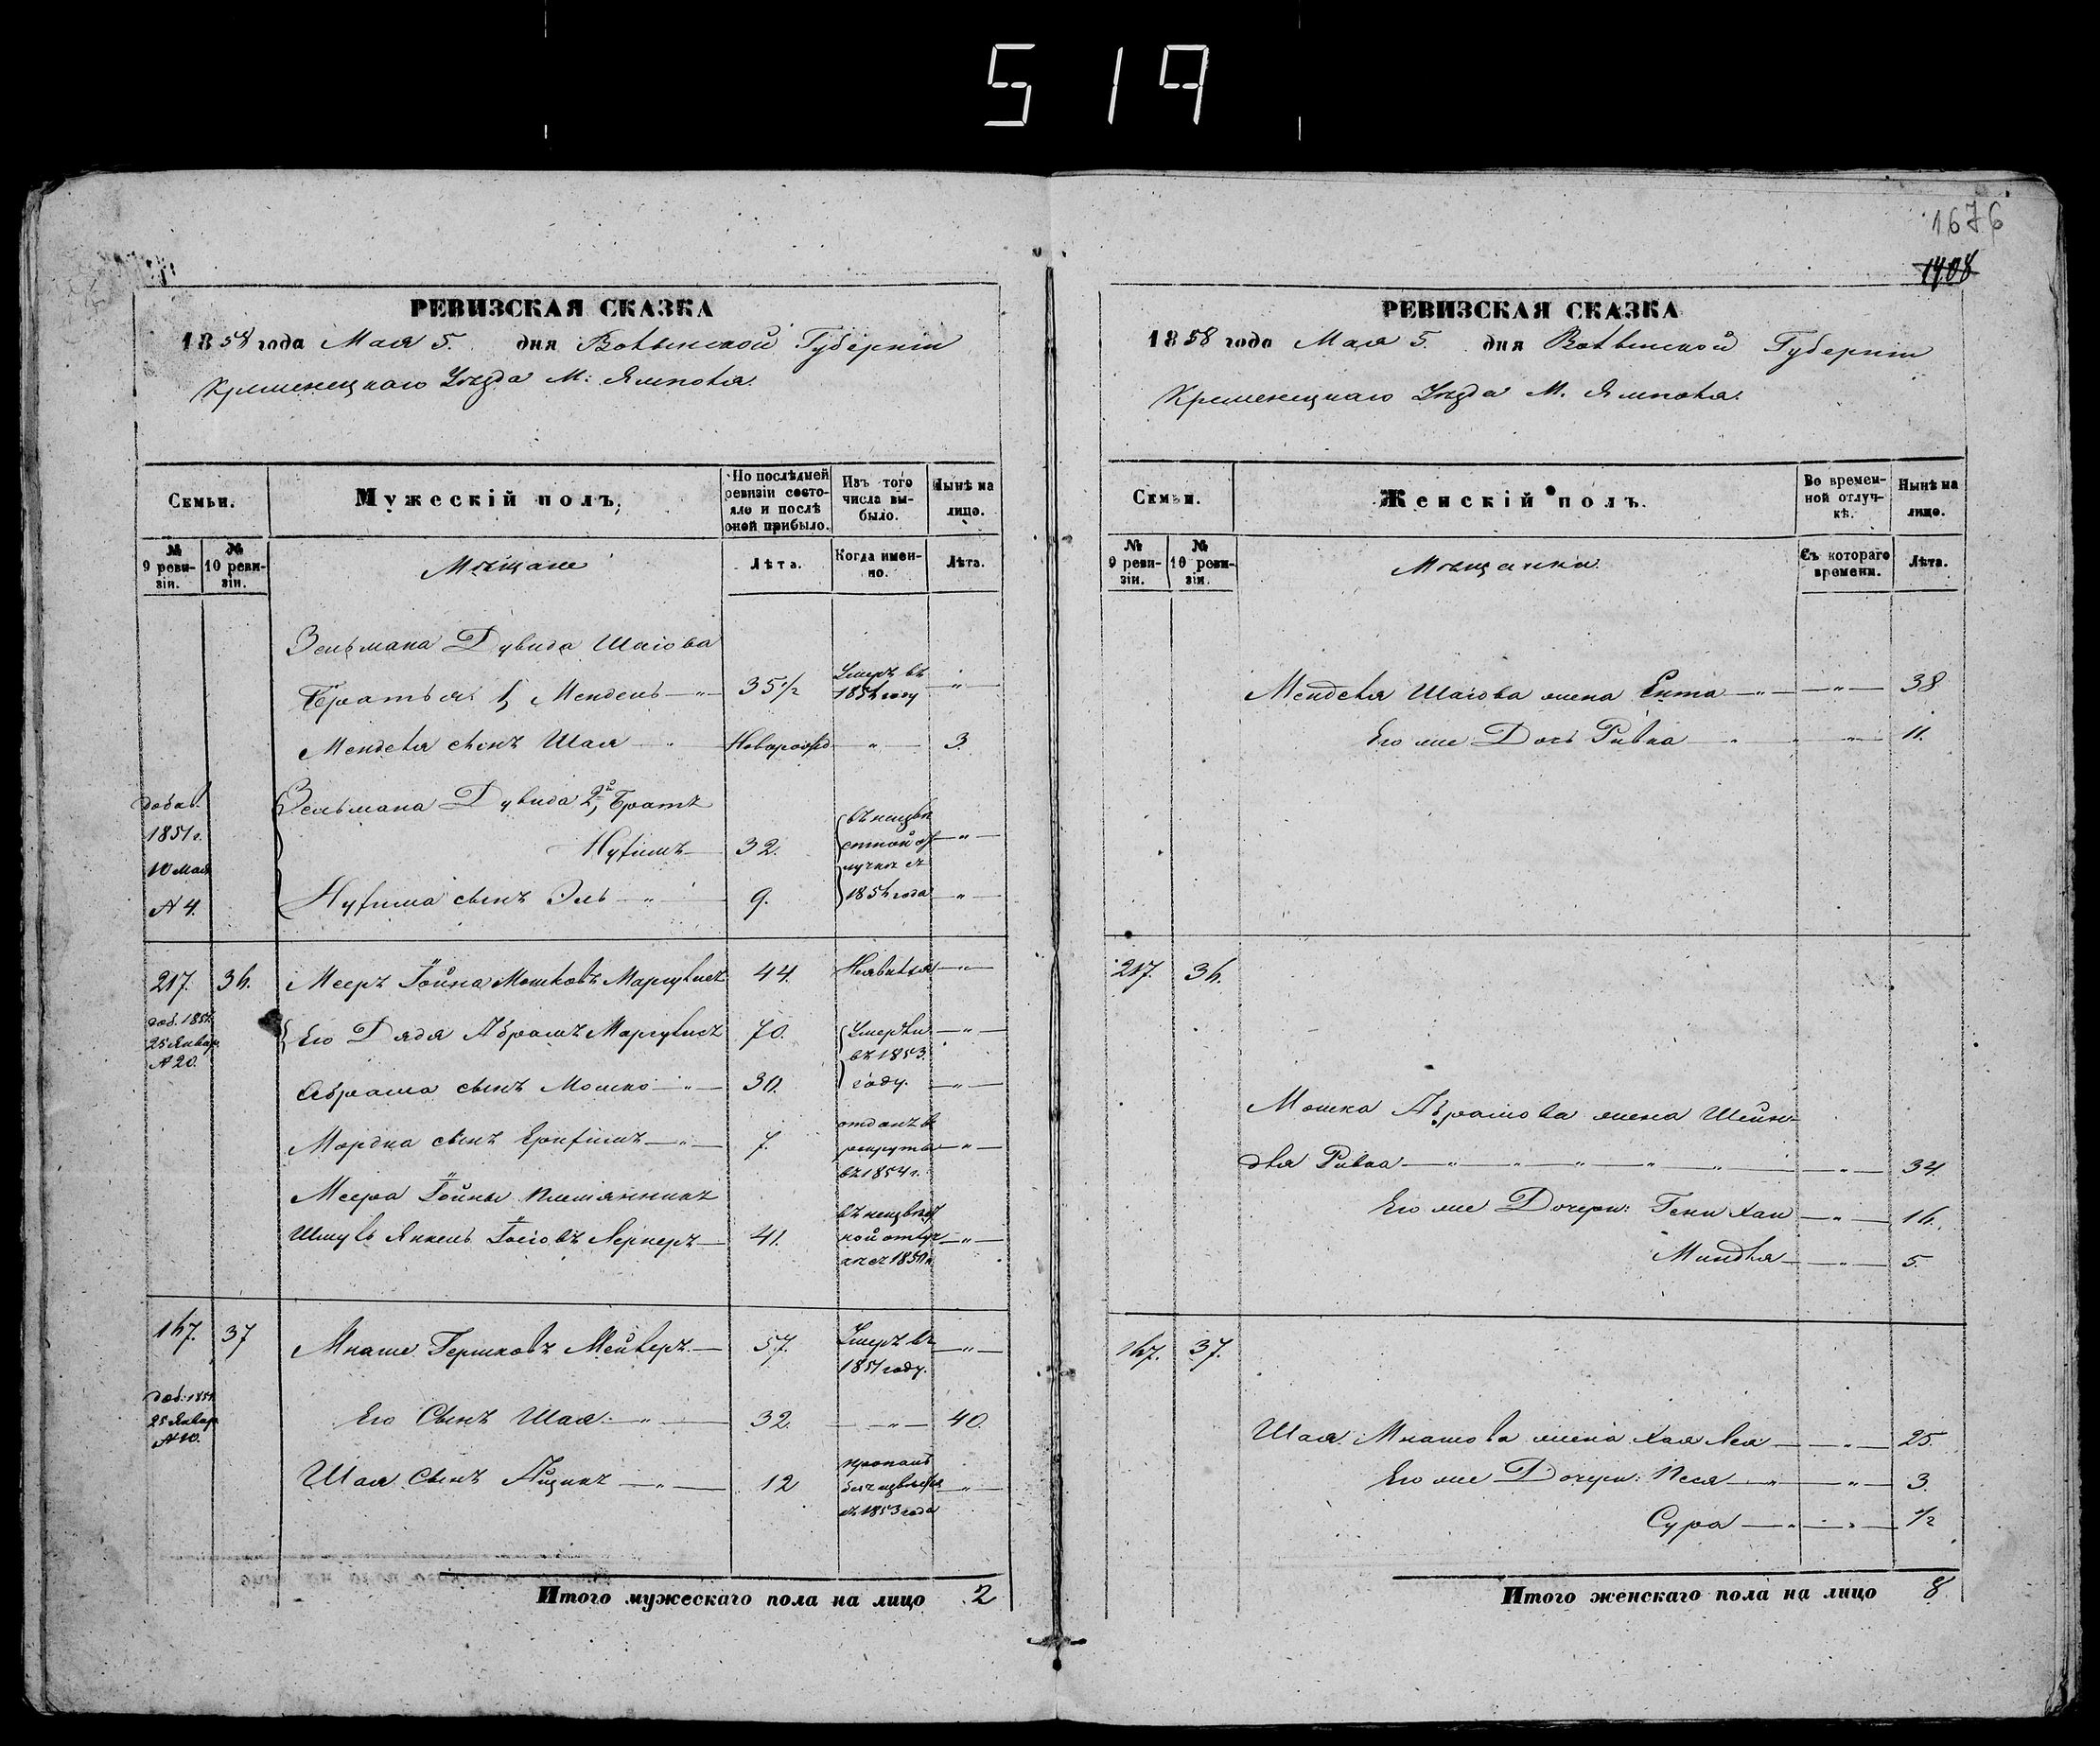 519
1676
1408
РЕВИЗСКАЯ СКАЗКА
1858 года Мая 5. дня Волынской Губерніи
Кременецкаго Уѣзда М. Ямполя.
Семьи.
Мужескій полъ.
По послѣдней ревизіи состояло и послѣ оной прибыло.
Изъ того числа выбыло.
Нынѣ на лицо.
№ 9 ревизіи.
№ 10 ревизіи.
Мѣщане
Лѣта.
Когда именно.
Лѣта.
Зельмана Дувида Шаіова
Братья: 1, Мендель 35 1/2 Умеръ въ
Менделя сынъ Шая Новорожд 3.
добав. 1851 г. 10 Мая № 4.
Зельмана Дувида 2й, Братъ
Нухимъ 32. въ неизвѣстной отлучкѣ съ
Нухима сынъ Эль 9. года
217. 36. Мееръ Іойна Мошковъ Маргулисъ 44. Неявился
Его Дядя Абрамъ Маргулисъ 70. Умерли
25 Январ. № 20.
въ 1853 году.
Абрама сынъ Мошко 30.
Мордка сынъ Ерухимъ 7. отданъ в рекруты въ 1854 г.
Меера Іойны племянникъ
Шмуль Янкель Іосіовъ Лернеръ 41. въ неизвѣст ной отлуч
167. 37 Мнаше Гершковъ Мейлеръ 57. Умеръ въ 1851 году.
25 Январ № 10.
Его Сынъ Шая 32. 40.
Шая Сынъ Айзикъ 12 пропалъ безъ извѣстія съ 1853 года
Итого мужескаго пола на лицо 2
РЕВИЗСКАЯ СКАЗКА
1858 года Мая 5. дня Волынской Губерніи
Кременецкаго Уѣзда М. Ямполя.
Семьи.
Женскій полъ.
Во временной отлучкѣ.
Нынѣ на лицо.
№ 9 ревизіи.
№ 10 ревизіи.
Мѣщанки
Съ котораго времени.
Лѣта.
Менделя Шаіова жена Ента 38
Его же Дочь Ривка 11.
217. 36.
Мошка Абрамова жена Шейн-
для Ривка 34.
Его же Дочери: Гени Хаи 16.
Миндля 5.
167. 37.
Шая Мнашова жена Хая Лея 25.
Его же Дочери: Песя 3.
Сура 1/2
Итого женскаго пола на лицо 8